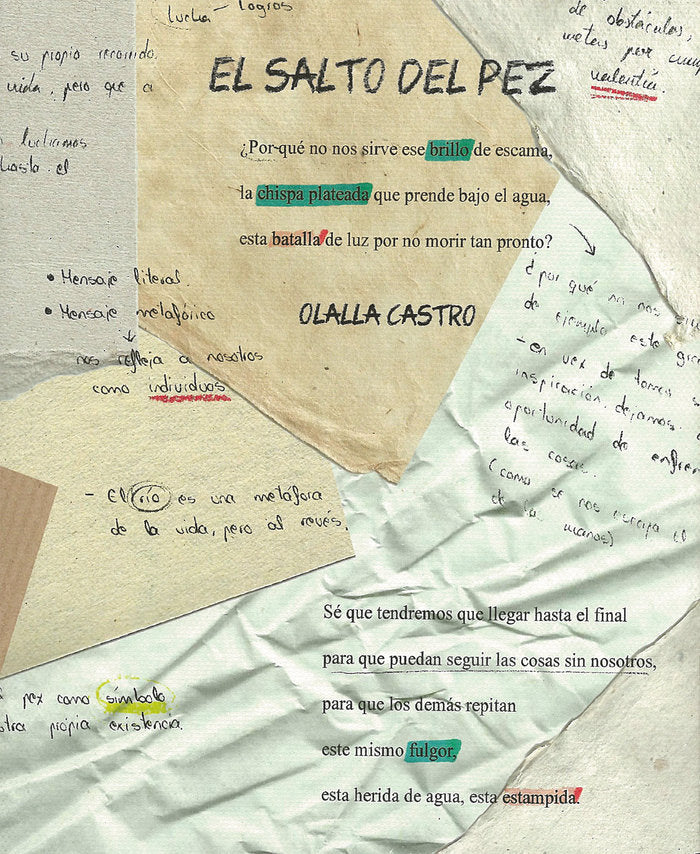 lucha - logros
de obstáculos,
metas por
valentía.
su propio recorrido.
vida, pero que a
luchamos
hasta el
EL SALTO DEL PEZ
¿Por qué no nos sirve ese brillo de escama,
la chispa plateada que prende bajo el agua,
esta batalla de luz por no morir tan pronto?
OLALLA CASTRO
• Mensaje literal.
• Mensaje metafórico
nos refleja a nosotros
como individuos
¿por qué no nos
de ejemplo este
- en vez de
inspiración, dejamos
oportunidad de
las cosas.
(como se nos escapa el
de las manos)
- El río es una metáfora
de la vida, pero al revés.
Sé que tendremos que llegar hasta el final
para que puedan seguir las cosas sin nosotros,
para que los demás repitan
este mismo fulgor,
esta herida de agua, esta estampida.
pez como símbolo
propia existencia.